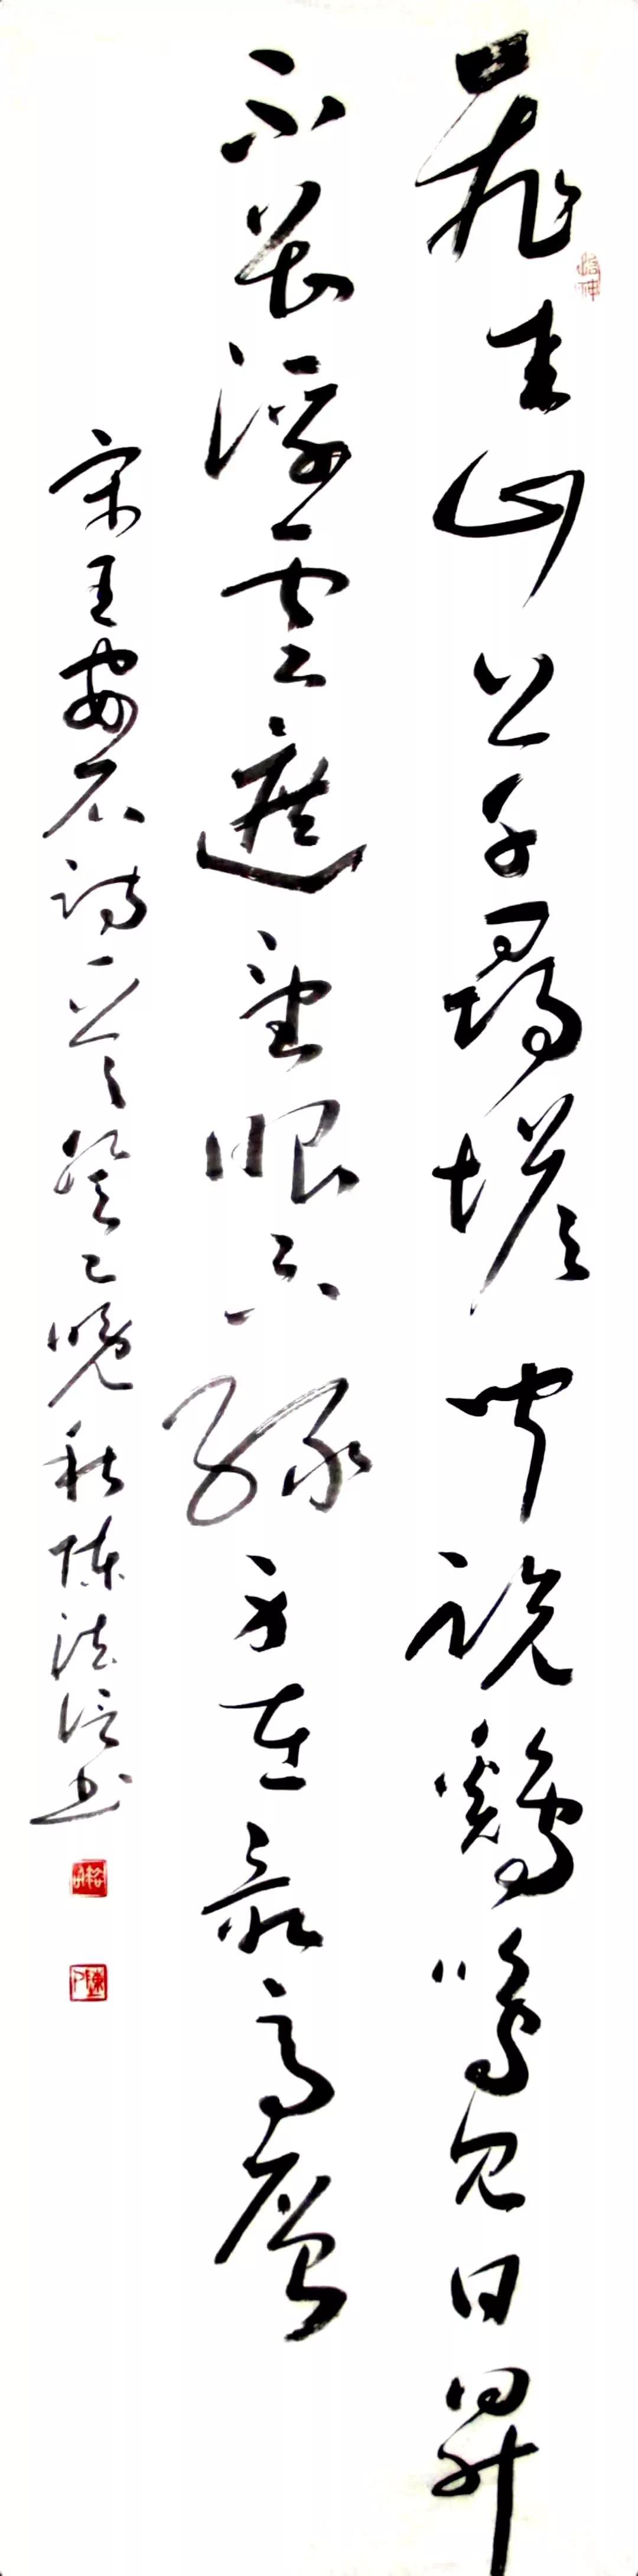 飛来山上千尋塔聞説鷄鳴見日昇
不畏浮雲遮望眼只緣身在最高層
宋王安石詩一首癸巳晚秋陳法信书